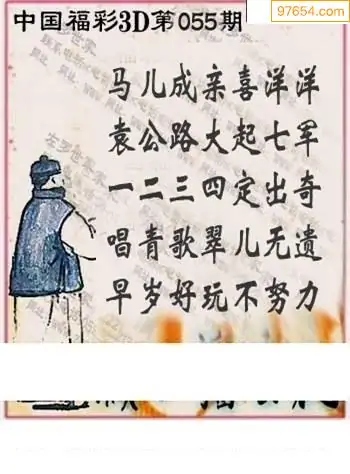 97654.com
中国福彩3D第055期
马儿成亲喜洋洋
袁公路大起七军
一二三四定出奇
唱青歌翠儿无遗
早岁好玩不努力